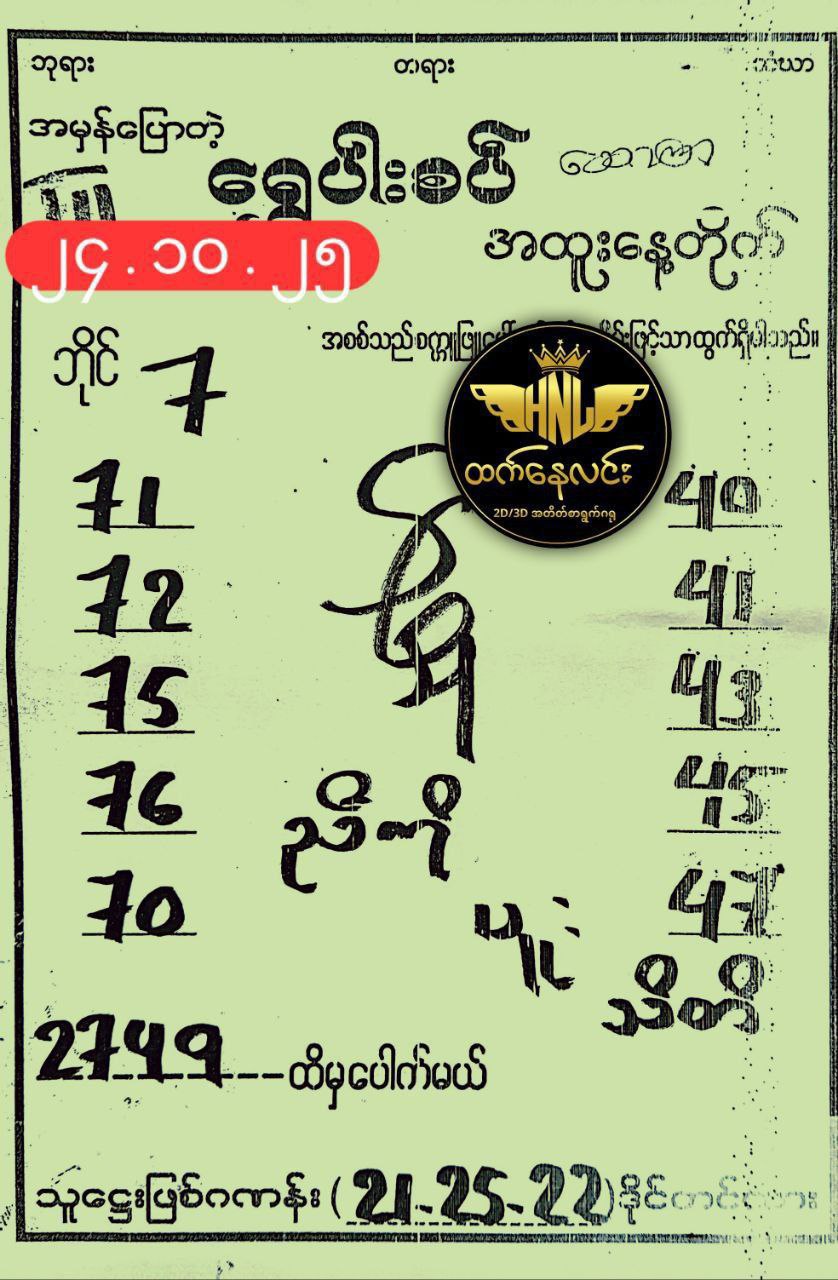 ဘုရား တရား
အမှန်ပြောတဲ့
ရွှေပါးစပ်
၂၄.၁၀.၂၅
အထူးနေ့တိုက်
အစစ်သည်စက္ကူဖြူပေါ် ဖြင့်သာထွက်ရှိပါသည်။
ဘိုင် 7
HNL
ထက်နေလင်း
2D/3D အတိတ်စာရွက်ဂရု
71 40
72 41
75 43
76 45
70 47
ညီကို
သိတိ
2749 ထိမှပေါက်မယ်
သူဌေးဖြစ်ဂဏန်း (21-25-22)